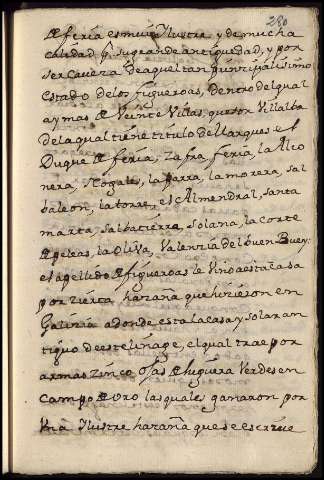 280
de feria es muy Ylustre y de mucha
calidad por su grande antiguedad, y por
ser Cavezа de aquel tan prinzipalisimo
estado de los figueroas, dentro del qual
ay mas de Veinte Villas, que son Villalba
de la qual tiene titulo de Marques el
Duque de feria, Zafra, feria, la Alco
nera, Nogales, la Parra, la morera, sal
baleon, la torre, el Almendral, santa
marta, salbatierra, solana, la corte
de Peleas, la Oliva, Valenzia del buen Buey:
el apellido de figueroas le vino a esta casa
por zierta hazaña que hizieron en
Galizia adonde esta la casa y solar an
tiguo de este linage, el qual trae por
armas zinco ojas de higuera Verdes en
campo de oro las quales ganaron por
Vna Ylustre hazaña que se escrive